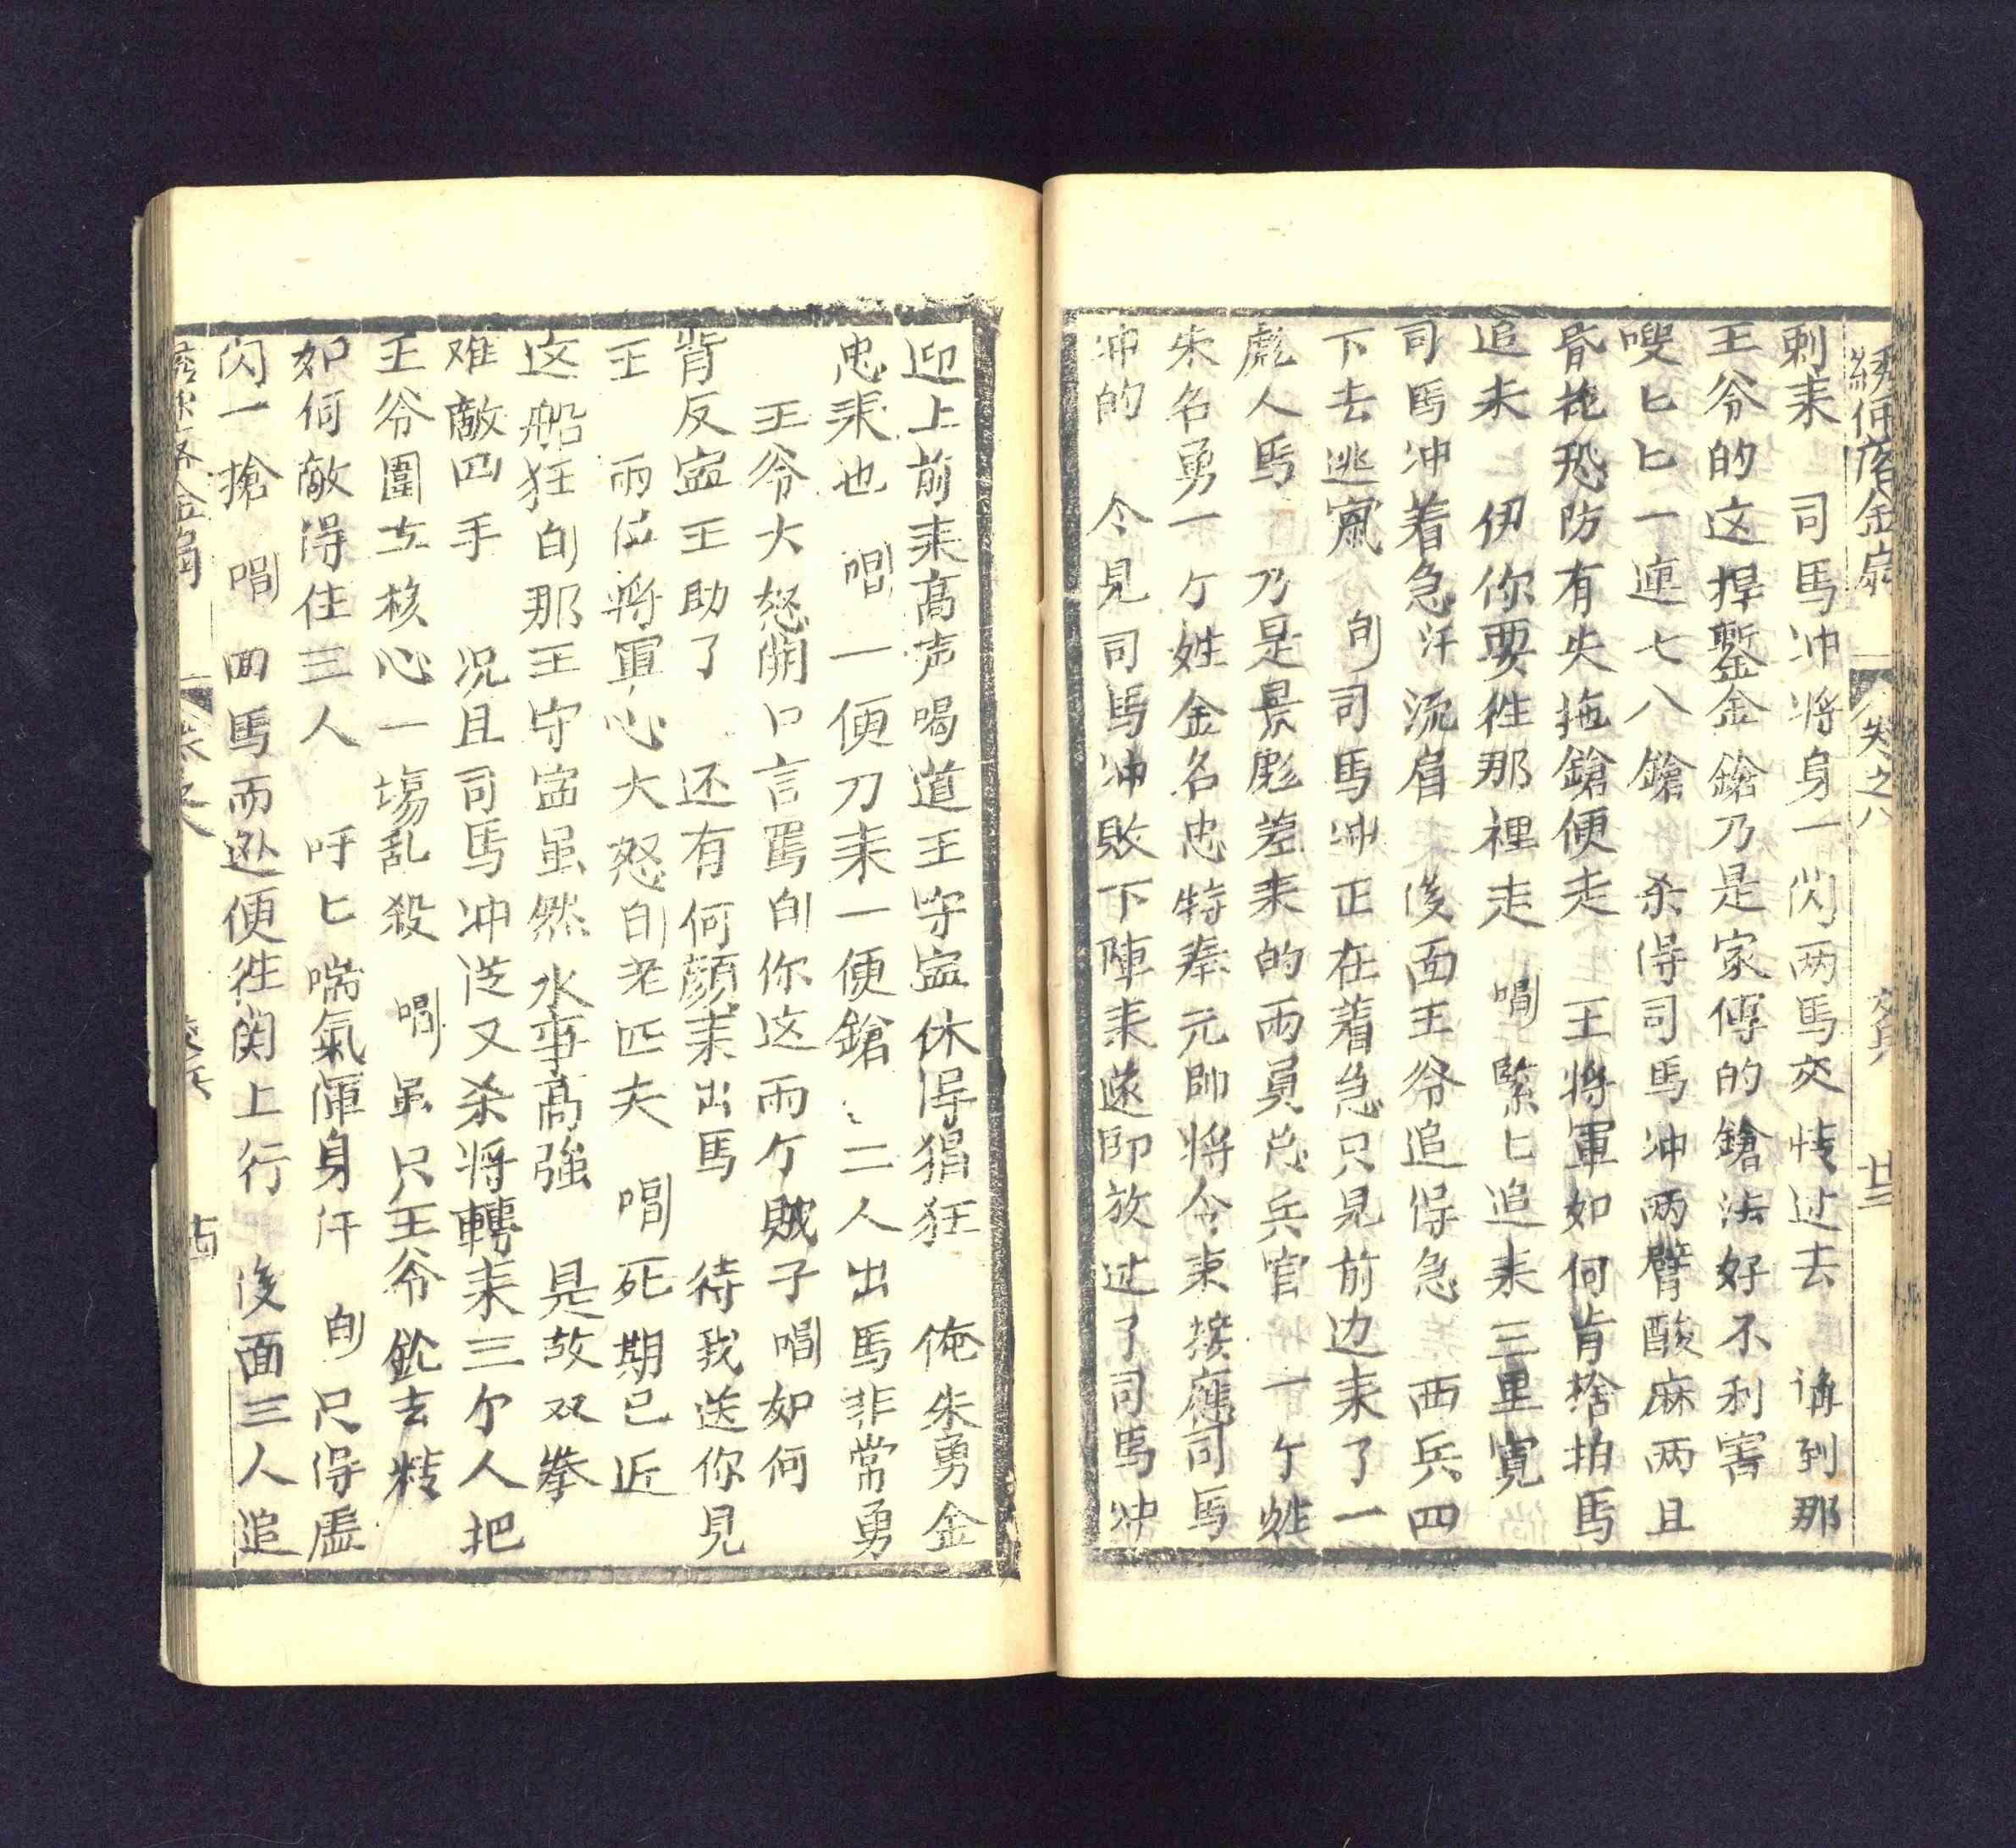 綉像落金扇 卷之八 交兵 廿三
刺来 司馬冲将身一閃两馬交恃过去 誰到那
王爷的这捍鏨金鎗乃是家傳的鎗法好不利害
嗖匕匕匕一連七八鎗 杀得司馬冲两臂酸麻两且
昏花恐防有失拖鎗便走 王将軍如何肯捨拍馬
追未 伊你要徃那裡走 唱緊匕追来三里寛
司馬冲着急汗流眉 後面王爷追得急 西兵四
下去逃竄 白司馬冲正在着急只見前边来了一
彪人馬 乃是景彪差来的两員总兵官 一个姓
朱名勇一个姓金名忠特奉元帥将令来接應司馬
冲的 今見司馬冲敗下陣来遂即放过了司馬冲
迎上前来高声喝道王守宻休得猖狂 俺朱勇金
忠来也 唱一便刀来一便鎗 二人出馬非常勇
王爷大怒開口言罵白你这两个賊子唱如何
背反宻王助了 还有何顔来出馬 待我送你見
王 两位将軍心大怒白老匹夫 唱死期已近
这船狂白那王守宻虽然水事高強 是故双拳
难敵四手 况且司馬冲从又杀将轉来三个人把
王爷圍在核心一塲乱殺 唱虽只王爷鈗去精
如何敵得住三人 吁匕喘氣渾身汗 白只得虛
閃一搶 唱回馬而迯便徃関上行 後面三人追